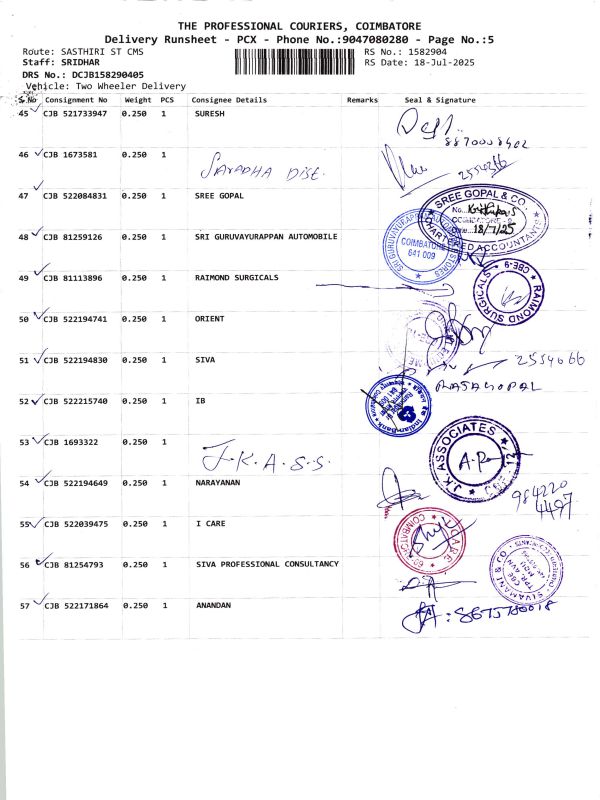 THE PROFESSIONAL COURIERS, COIMBATORE
Delivery Runsheet - PCX - Phone No.:9047080280 - Page No.:5
Route: SASTHIRI ST CMS RS No.: 1582904
Staff: SRIDHAR RS Date: 18-Jul-2025
DRS No.: DCJB158290405
Vehicle: Two Wheeler Delivery
S.No Consignment No Weight PCS Consignee Details Remarks Seal & Signature
45 CJB 521733947 0.250 1 SURESH
8870008902
46 CJB 1673581 0.250 1 SARADHA DISE.
2554366
47 CJB 522084831 0.250 1 SREE GOPAL
SREE GOPAL & CO.,
CHARTERED ACCOUNTANTS
18/7/25
48 CJB 81259126 0.250 1 SRI GURUVAYURAPPAN AUTOMOBILE
SRI GURUVAYURAPPAN
COIMBATORE
641 009
49 CJB 81113896 0.250 1 RAIMOND SURGICALS
RAIMOND SURGICALS
CBE-9
50 CJB 522194741 0.250 1 ORIENT
51 CJB 522194830 0.250 1 SIVA
2554066
RAJAGOPAL
52 CJB 522215740 0.250 1 IB
Indian Bank
53 CJB 1693322 0.250 1 J.K.A.S.S.
J.K. ASSOCIATES
CBE-12
54 CJB 522194649 0.250 1 NARAYANAN
984220
4497
55 CJB 522039475 0.250 1 I CARE
I CARE
COIMBATORE
56 CJB 81254793 0.250 1 SIVA PROFESSIONAL CONSULTANCY
SIVAMANI & CO.
57 CJB 522171864 0.250 1 ANANDAN